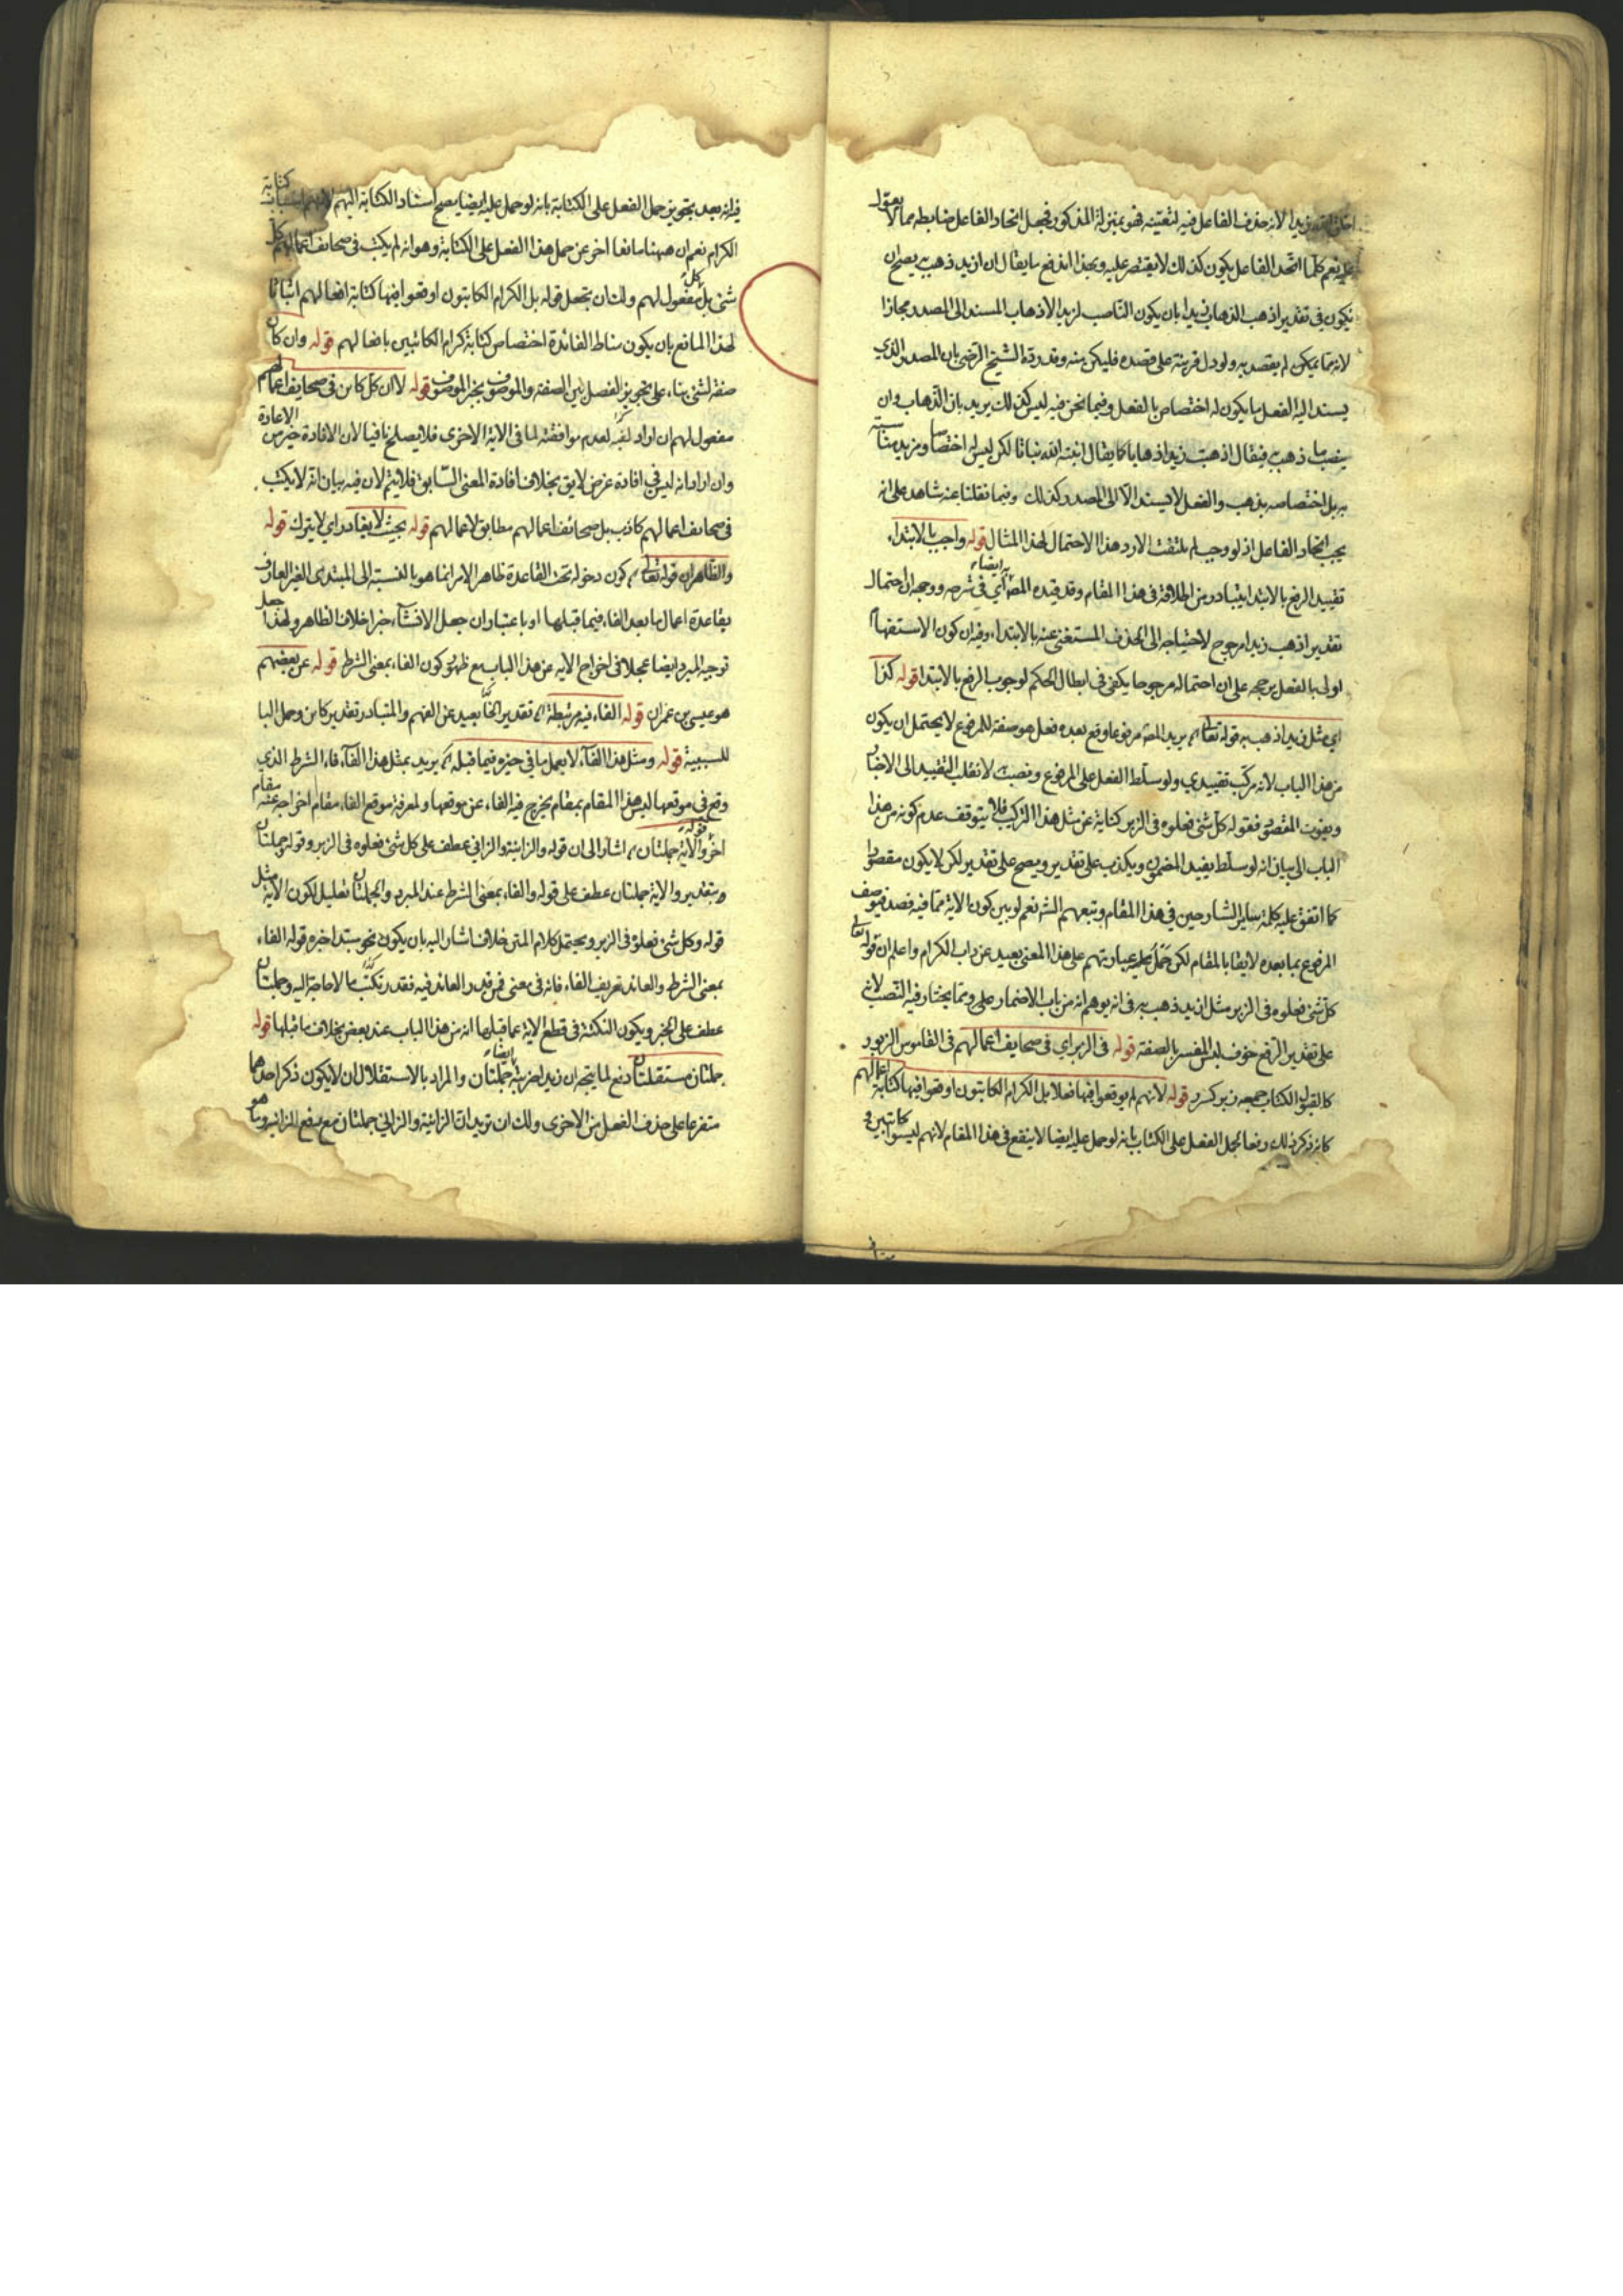 زيدا لانه حذف الفاعل فيه لتعينه فهو بمنزلة المذكور فجعل اتحاد الفاعل ضابطه مما لا يعول
عليه نعم كلما اتحد الفاعل يكون كذلك لا يقتصر عليه وبهذا اندفع ما يقال ان ازيد ذهب به يصح ان
يكون في تقدير اذهب الذهاب زيدا بان يكون الناصب لزيد الاذهاب المسند الى المصدر مجازا
لانه مما يمكن لم يقصد به ولو دل قرينة على قصده فليكن منه وقد رده الشيخ الرضي بان المصدر الذي
يسند اليه الفعل ما يكون له اختصاص بالفعل وفيما نحن فيه ليس كذلك يريد بان الذهاب وان
ذهب به فيقال اذهبت زيدا اذهابا كما يقال انبته الله نباتا لكن ليس له اختصاص ومزيد مناسبة
به بل اختصاصه بذهب والفعل لا يسند الا الى المصدر كذلك وفيما نقلنا عنه شاهد على انه
يجب اتحاد الفاعل اذ لو وجب لم يلتفت الا رد هذا الاحتمال لهذا المثال قوله واجب بالابتداء
تقييد الرفع بالابتداء يتبادر من اطلاقه في هذا المقام وقد قيده المص به ايضا اي في شرحه ووجه ان احتمال
تقدير اذهب زيد مرجوح لاحتياجه الى الحذف المستغنى عنه بالابتداء وفيه ان كون الاستفهام
اولى بالفعل يرجحه على ان احتماله مرجوحا يكفي في ابطال الحكم لوجوب الرفع بالابتداء قوله كذا
اي مثل ازيد اذهب به قوله تعالى يريد المص مرفوعا وقع بعده فعل هو صفة للمرفوع لا يحتمل ان يكون
من هذا الباب لانه مركب تقييدي ولو سلط الفعل على المرفوع ونصبته لانقلب التقييد الى الاخبار
ويفوت المقصود فقوله كل شئ فعلوه في الزبر كناية عن مثل هذا التركيب فلا يتوقف عدم كونه من هذا
الباب الى بيان انه لو سلط يفيد المضمون ويكذب على تقدير ويصح على تقدير لكن لا يكون مقصودا
كما اتفق عليه كلمة ساير الشارحين في هذا المقام وتبعهم الش نعم لو بين كون الاية مما فيه قصد توصيف
المرفوع بما بعده لايقا بالمقام لكن حمل عباراتهم على هذا المعنى بعيد عن داب الكرام واعلم ان قوله تعالى
كل شئ فعلوه في الزبر مثل ازيد ذهب به في انه يوهم انه من باب الاضمار على ومما يختار فيه النصب لان
على تقدير الرفع خوف لبس المفسر بالصفة قوله في الزبر اي في صحايف اعمالهم في القاموس الزبور
الكتاب جمعه زبر قوله لانهم لم يوقعوا فيها فعلا بل الكرام الكاتبون اوقعوا فيها كتابة اعمالهم
كانه ذكر ذلك دفعا لحمل الفعل على الكتاب بانه لو حمل عليه ايضا لا ينفع في هذا المقام لانهم ليسوا كاتبين
فيه انه بعد تجويز حمل الفعل على الكتابة بانه لو حمل عليه ايضا يصح اسناد الكتابة اليهم
الكرام نعم ان ههنا مانعا اخر عن حمل هذا الفعل على الكتابة وهو انه لم يكتب في صحايف اعمالهم كل
شئ بل كل مفعول لهم ولك ان تجعل قوله بل الكرام الكاتبون اوقعوا فيها كتابة افعالهم اثباتا
لهذا المانع بان يكون مناط الفائدة اختصاص كتابة كرام الكاتبين بافعالهم قوله وان كان
صفة لشئ بناء على تجويز الفصل بين الصفة والموصوف بخبر الموصوف قوله لا ان كل كاين في صحايف اعمالهم
مفعول لهم ان اراد نفيه لعدم موافقته لما في الاية الاخرى فلا يصلح نافيا لان الافادة خير من الاعادة
وان اراد انه ليس في افادة غرض لايق بخلاف افادة المعنى السابق فلا يتم لان فيه بيان انه لا يكتب
في صحايف اعمالهم كاذب بل صحائف اعمالهم مطابق لاعمالهم قوله بحيث لا يغادر اي لا يترك قوله
والظاهر ان قوله تعالى كون دخوله تحت القاعدة ظاهر الامر انما هو بالنسبة الى المبتدى الغير العارف
بقاعدة اعمال ما بعد الفاء فيما قبلها او باعتبار ان جعل الانشاء خبرا خلاف الظاهر ولهذا جعل
توجيه المبرد ايضا عجلا في اخراج الاية عن هذا الباب مع ظهور كون الفاء بمعنى الشرط قوله عن بعضهم
هو عيسى بن عمران قوله الفاء فيه مرتبطة تقدير بعيد عن الفهم والمتبادر تقدير كاين وحمل الباء
للسببية قوله ومثل هذا الفاء لا يعمل ما في حيزه فيما قبله يريد بمثل هذا الفاء فاء الشرط الذي
وقع في موقعها ليس هذا المقام بمقام يخرج فيه الفاء عن موقعها ولمعرفة موقع الفاء مقام اخر اخرجه عنه مقام
اخر قوله والاية جملتان اشار الى ان قوله والزانية والزاني عطف على كل شئ فعلوه في الزبر وقوله جملتان
وبتقدير والاية جملتان عطف على قوله والفاء بمعنى الشرط عند المبرد والجملتان تعليل لكون الاية مثل
قوله وكل شئ فعلوه في الزبر ويحتمل كلام المتن خلاف ما اشار اليه بان يكون نحو مبتدا خبره قوله الفاء
بمعنى الشرط والعائد تعريف الفاء فانه في معنى فمن قدر العائد فيه فقد تكلف ما لا حاجة اليه وجملتان
عطف على الخبر ويكون النكتة في قطع الاية عما قبلها انه من هذا الباب عند بعض بخلاف ما قبلها قوله
جملتان مستقلتان دفع لما يتجه ان زيدا ضربته ايضا جملتان والمراد بالاستقلال ان لا يكون ذكر احدهما
متفرعا على حذف الفعل من الاخرى ولك ان تريد ان الزانية والزاني جملتان مع رفع الزانية